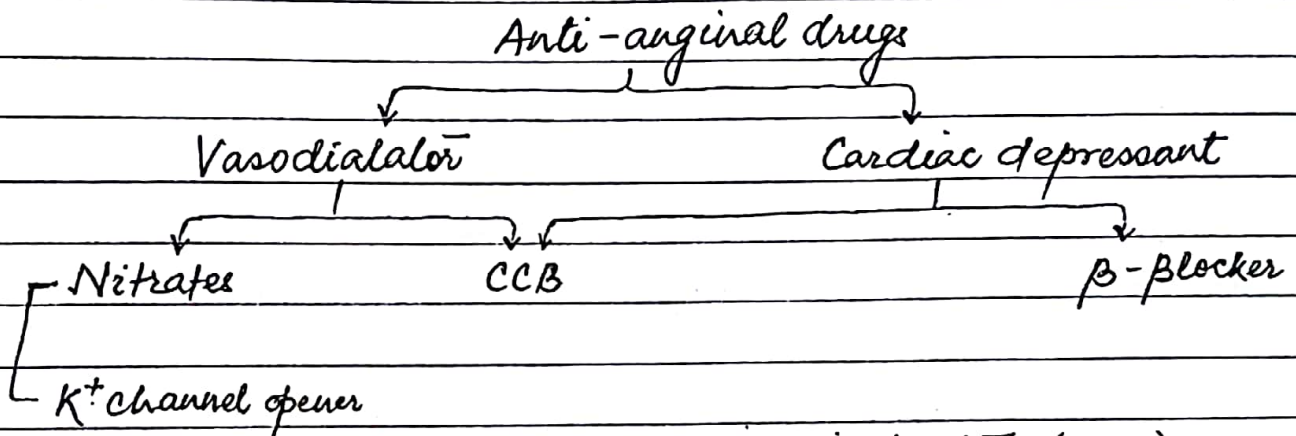 Anti-anginal drugs
Vasodialator Cardiac depressant
Nitrates CCB β-βlocker
K+ channel opener